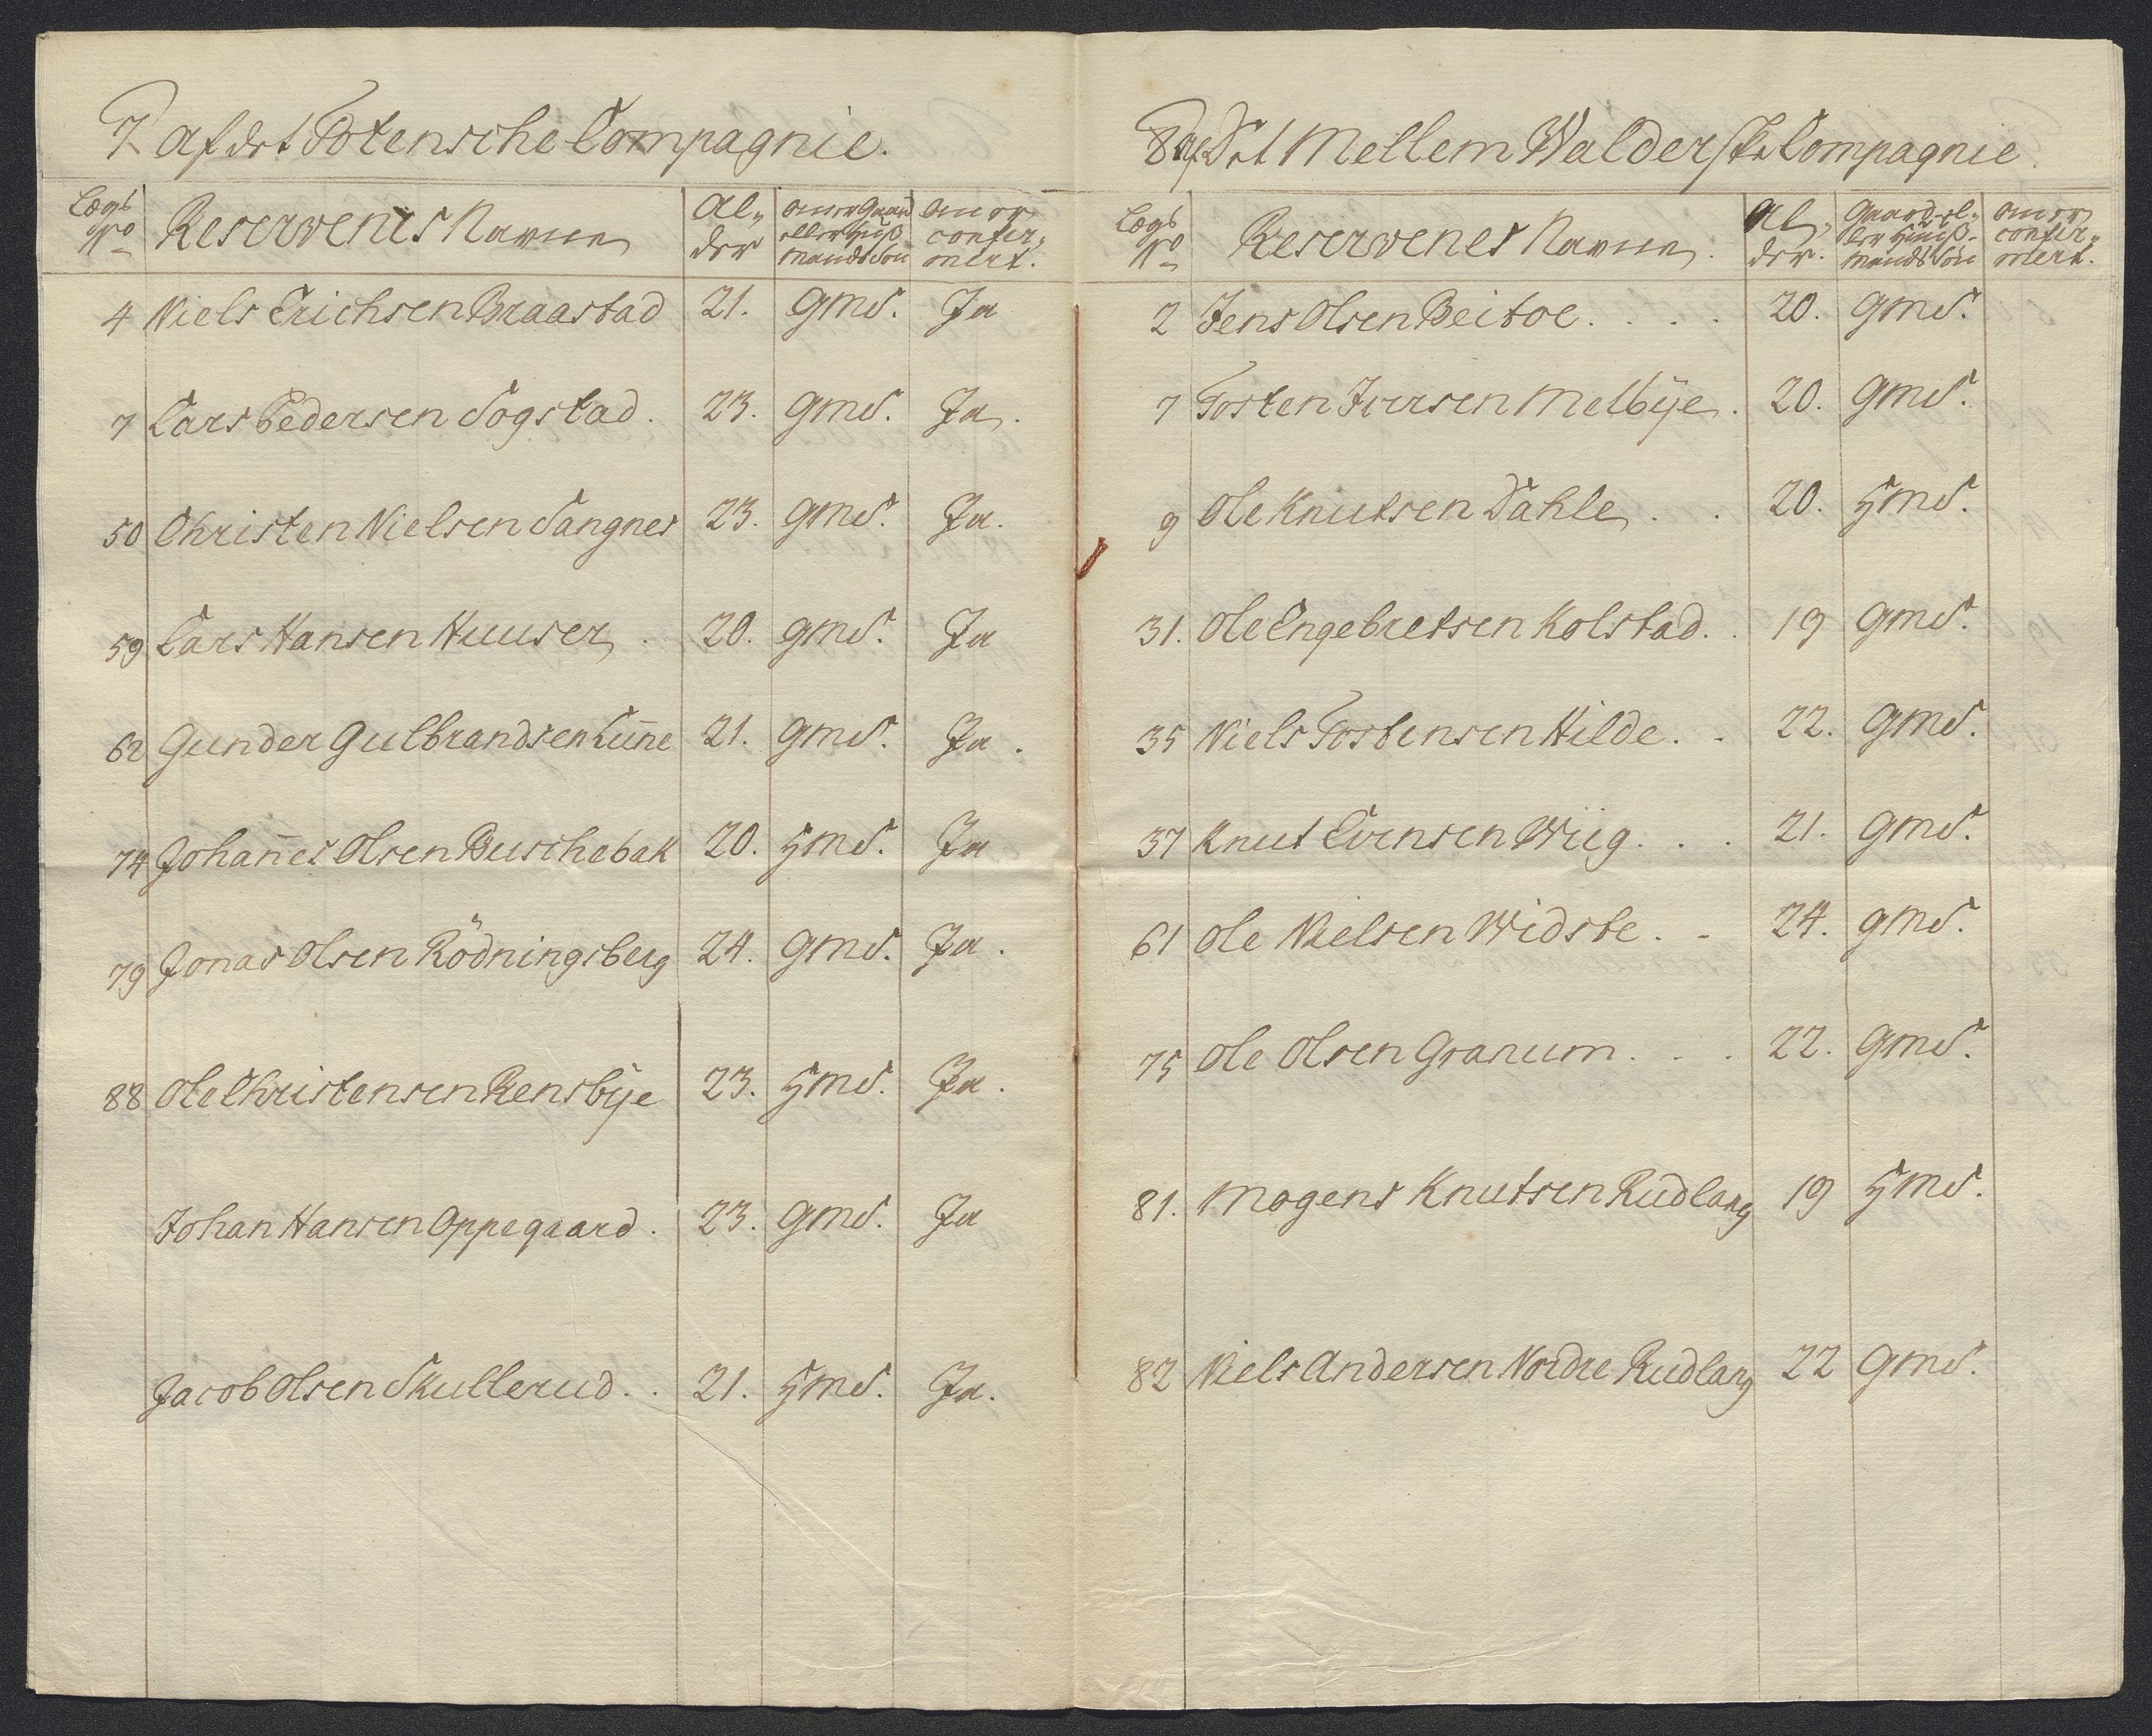 7 af det Totensche Compagnie.
Lægs No Reservenes Navne Al,, der om er Gaard eller Huuß mands Søn om er confir,, mert.
4 Niels Erichsen Braastad 21. GmS. Ja
7 Lars Pedersen Sogstad. 23. GmS. Ja.
50 Christen Nielsen Sangnes 23. GmS. Ja.
59 Lars Hansen Huuser. 20. GmS. Ja
62 Gunder Gulbrandsen Lun̄e 21. GmS. Ja.
74 Johan̄es Olsen Buschebak 20. HmS. Ja
79 Jonas Olsen Rödningsberg 24. GmS. Ja.
88 Ole Christensen Rensbÿe 23. HmS. Ja.
Johan Hansen Oppegaard. 23. GmS. Ja
Jacob Olsen Skullerud. . 21. HmS. Ja.
8 af Det Mellem Walderske Compagnie.
Lægs No Reservenes Navne. Al,, der. Gaard-el,, ler Huuß- mands Søn om er confir,, mert.
2 Jens Olsen Beitoe. . . . 20. GmS.
7 Tosten Iversen Melbÿe. 20. GmS.
9 Ole Knutsen Dahle. . 20. HmS.
31. Ole Engebretsen Kolstad. . 19 GmS.
35 Niels Tostensen Hilde. . 22. GmS.
37 Knut Evensen Wiig. . . 21. GmS.
61 Ole Nielsen Widste. - 24. GmS.
75 Ole Olsen Granum. . . 22. GmS.
81. Mogens Knutsen Rudlang 19 HmS.
82 Niels Andersen Nordre Rudlang 22 GmS.